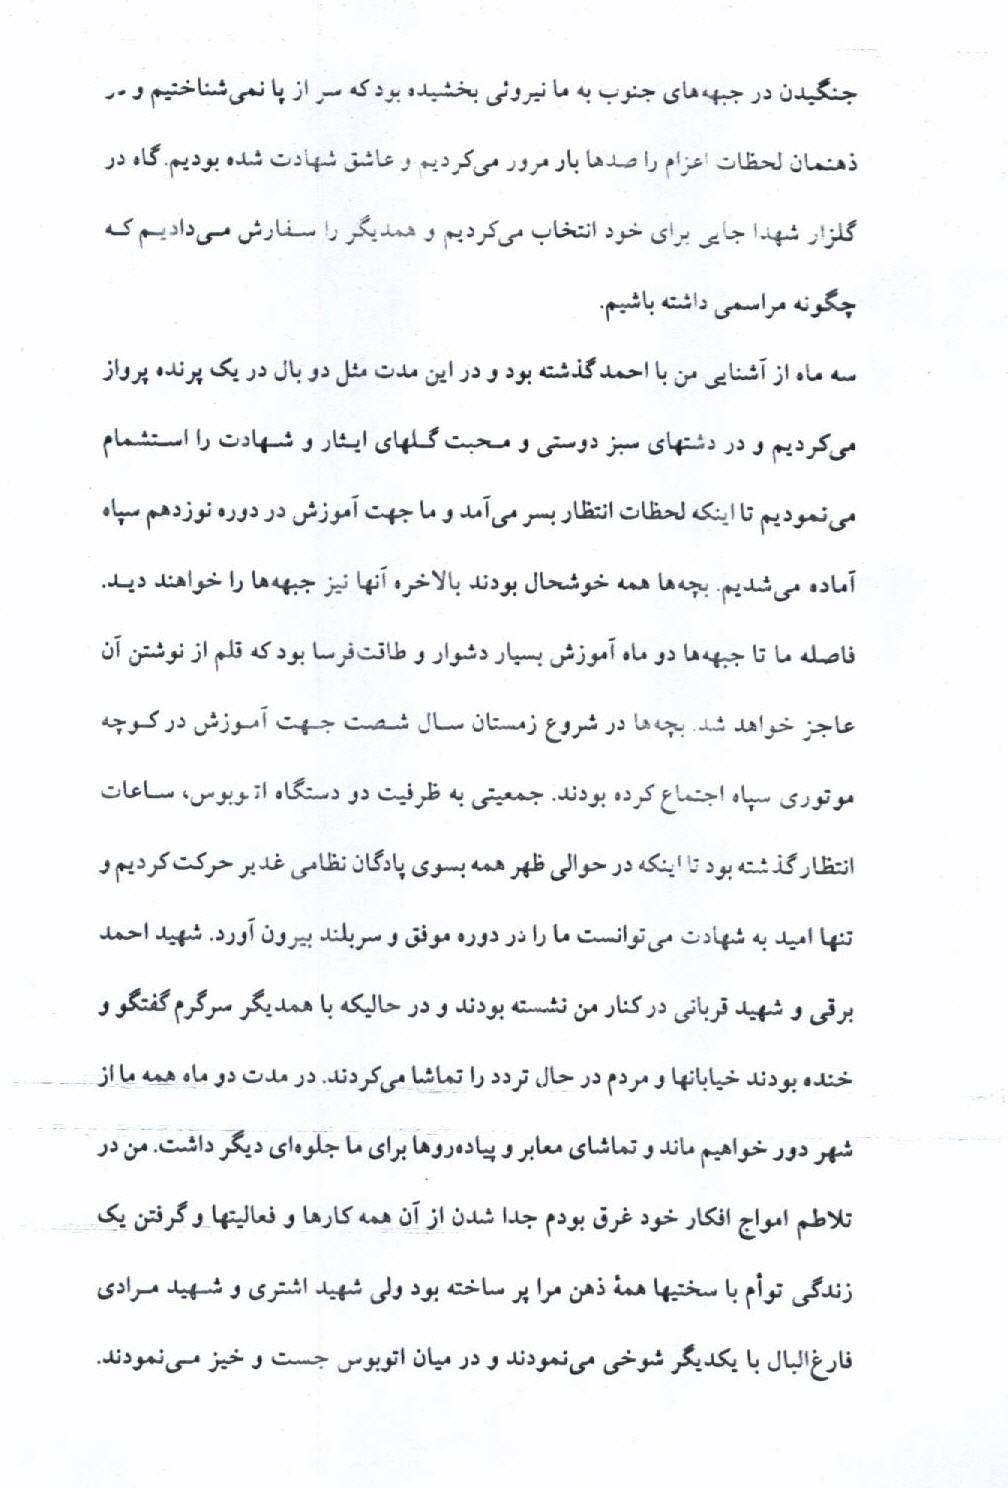 جنگیدن در جبهه‌های جنوب به ما نیروئی بخشیده بود که سر از پا نمی‌شناختیم و در
ذهنمان لحظات اعزام را صدها بار مرور می‌کردیم و عاشق شهادت شده بودیم. گاه در
گلزار شهدا جایی برای خود انتخاب می‌کردیم و همدیگر را سفارش می‌دادیم که
چگونه مراسمی داشته باشیم.
سه ماه از آشنایی من با احمد گذشته بود و در این مدت مثل دو بال در یک پرنده پرواز
می‌کردیم و در دشتهای سبز دوستی و محبت گلهای ایثار و شهادت را استشمام
می‌نمودیم تا اینکه لحظات انتظار بسر می‌آمد و ما جهت آموزش در دوره نوزدهم سپاه
آماده می‌شدیم. بچه‌ها همه خوشحال بودند بالاخره آنها نیز جبهه‌ها را خواهند دید.
فاصله ما تا جبهه‌ها دو ماه آموزش بسیار دشوار و طاقت‌فرسا بود که قلم از نوشتن آن
عاجز خواهد شد. بچه‌ها در شروع زمستان سال شصت جهت آموزش در کوچه
موتوری سپاه اجتماع کرده بودند. جمعیتی به ظرفیت دو دستگاه اتوبوس، ساعات
انتظار گذشته بود تا اینکه در حوالی ظهر همه بسوی پادگان نظامی غدیر حرکت کردیم و
تنها امید به شهادت می‌توانست ما را در دوره موفق و سربلند بیرون آورد. شهید احمد
برقی و شهید قربانی در کنار من نشسته بودند و در حالیکه با همدیگر سرگرم گفتگو و
خنده بودند خیابانها و مردم در حال تردد را تماشا می‌کردند. در مدت دو ماه همه ما از
شهر دور خواهیم ماند و تماشای معابر و پیاده‌روها برای ما جلوه‌ای دیگر داشت. من در
تلاطم امواج افکار خود غرق بودم جدا شدن از آن همه کارها و فعالیتها و گرفتن یک
زندگی توأم با سختیها همهٔ ذهن مرا پر ساخته بود ولی شهید اشتری و شهید مرادی
فارغ‌البال با یکدیگر شوخی می‌نمودند و در میان اتوبوس جست و خیز می‌نمودند.